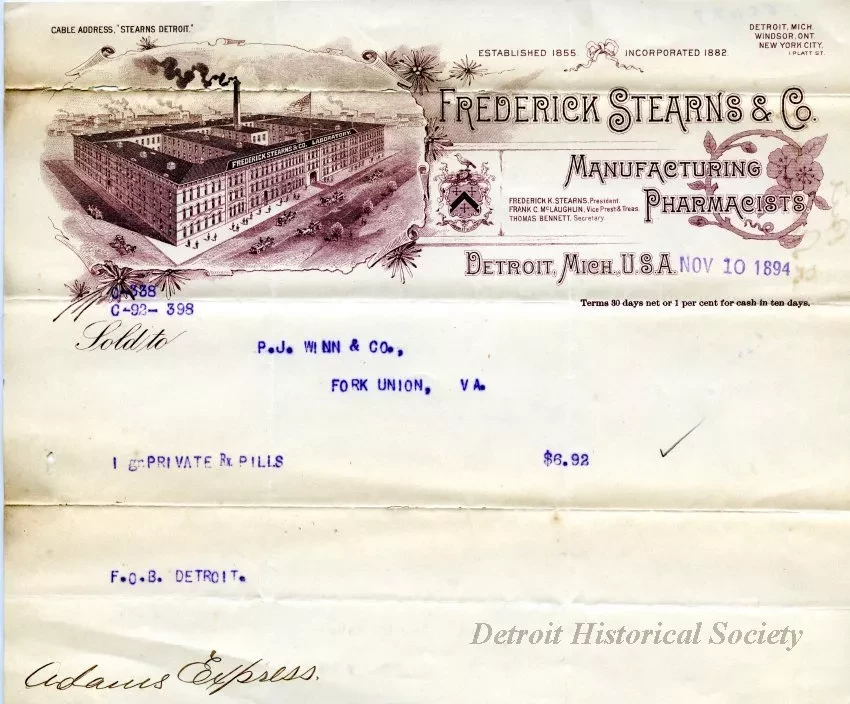 CABLE ADDRESS, "STEARNS DETROIT."
ESTABLISHED 1855 INCORPORATED 1882
DETROIT, MICH.
WINDSOR, ONT.
NEW YORK CITY,
1 PLATT ST.
FREDERICK STEARNS & CO.
FREDERICK STEARNS & CO. LABORATORY
MANUFACTURING
PHARMACISTS
FREDERICK K. STEARNS, President.
FRANK C. McLAUGHLIN, Vice Prest & Treas.
THOMAS BENNETT, Secretary.
DETROIT, MICH., U.S.A. NOV 10 1894
Terms 30 days net or 1 per cent for cash in ten days.
C-338
C-92- 398
Sold to
P.J. WINN & CO.,
FORK UNION, VA.
1 gr PRIVATE Rx PILLS $6.92
F.O.B. DETROIT.
Detroit Historical Society
Adams Express.